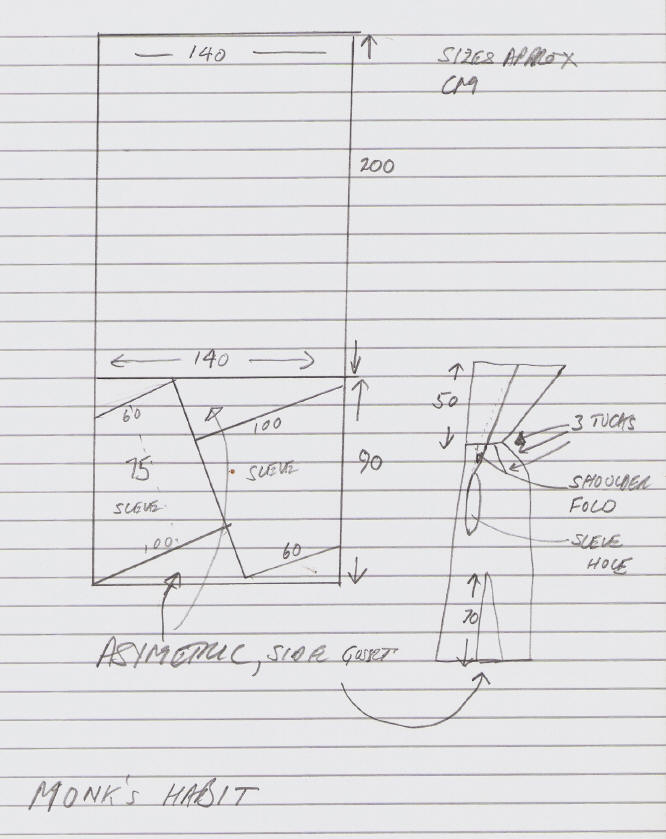 140
SIZES APPROX
CM
200
140
60
100
50
3 TUCKS
75
SLEVE
90
SLEVE
SHOULDER
FOLD
100
60
SLEVE
HOLE
70
ASYMETRIC, SIDE GUSSET
MONK'S HABIT